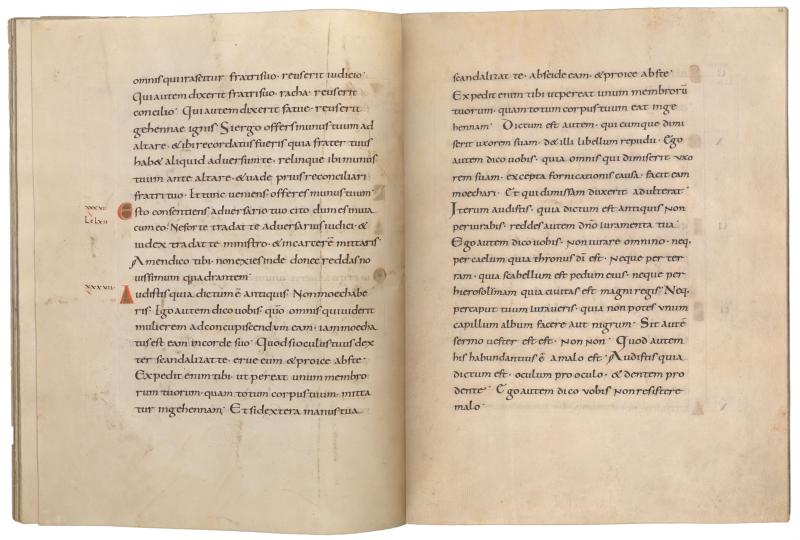 omnis qui irascitur fratri suo · reus erit iudicio·
Qui autem dixerit fratri suo · racha · reus erit
concilio· Qui autem dixerit fatue · reus erit
gehennae ignis· Si ergo offers munus tuum ad
altare · & ibi recordatus fueris quia frater tuus
hab& aliquid adversum te · relinque ibi munus
tuum ante altare · & uade prius reconciliari
fratri tuo· Et tunc veniens offeres munus tuum·
Esto consentiens adversario tuo cito dum es in uia
cum eo· Ne forte tradat te adversarius iudici · &
iudex tradat te ministro · & in carcerē mittaris·
Amen dico tibi · non exies inde donec reddas no
uissimum quadrantem·
xxxvii· Audistis quia dictum ē antiquis· Non moechabe
ris· Ego autem dico uobis · qūo omnis qui uiderit
mulierem ad concupiscendum eam · iam moecha
tus est eam in corde suo· Quod si oculus tuus dex
ter scandalizat te · erue eum & proice abs te·
Expedit enim tibi · ut pereat unum membro
rum tuorum · quam totum corpus tuum · mitta
tur in gehennam· Et si dextera manus tua
scandalizat te · abscide eam · & proice abs te·
Expedit enim tibi ut pereat unum membrorū
tuorum · quam totum corpus tuum eat in ge
hennam· Dictum est autem · quicumque dimi
serit uxorem suam · d& illi libellum repudii· Ego
autem dico uobis · quia omnis qui dimiserit uxo
rem suam · excepta fornicationis causa · facit eam
moechari· Et qui dimissam duxerit adulterat·
Iterum audistis · quia dictum est antiquis Non
periurabis · reddes autem dn̄o iuramenta tua·
Ego autem dico uobis · Non iurare omnino · neq·
per caelum quia thronus dī est· Neque per ter
ram · quia scabellum est pedum eius · neque per
hierosolimam quia ciuitas est magni regis· Neq·
per caput tuum iuraueris · quia non potes unum
capillum album facere aut nigrum· Sit autē
sermo uester est est· Non non· Quod autem
his habundantius ē a malo est· Audistis quia
dictum est · oculum pro oculo · & dentem pro
dente· Ego autem dico vobis Non resistere
malo·